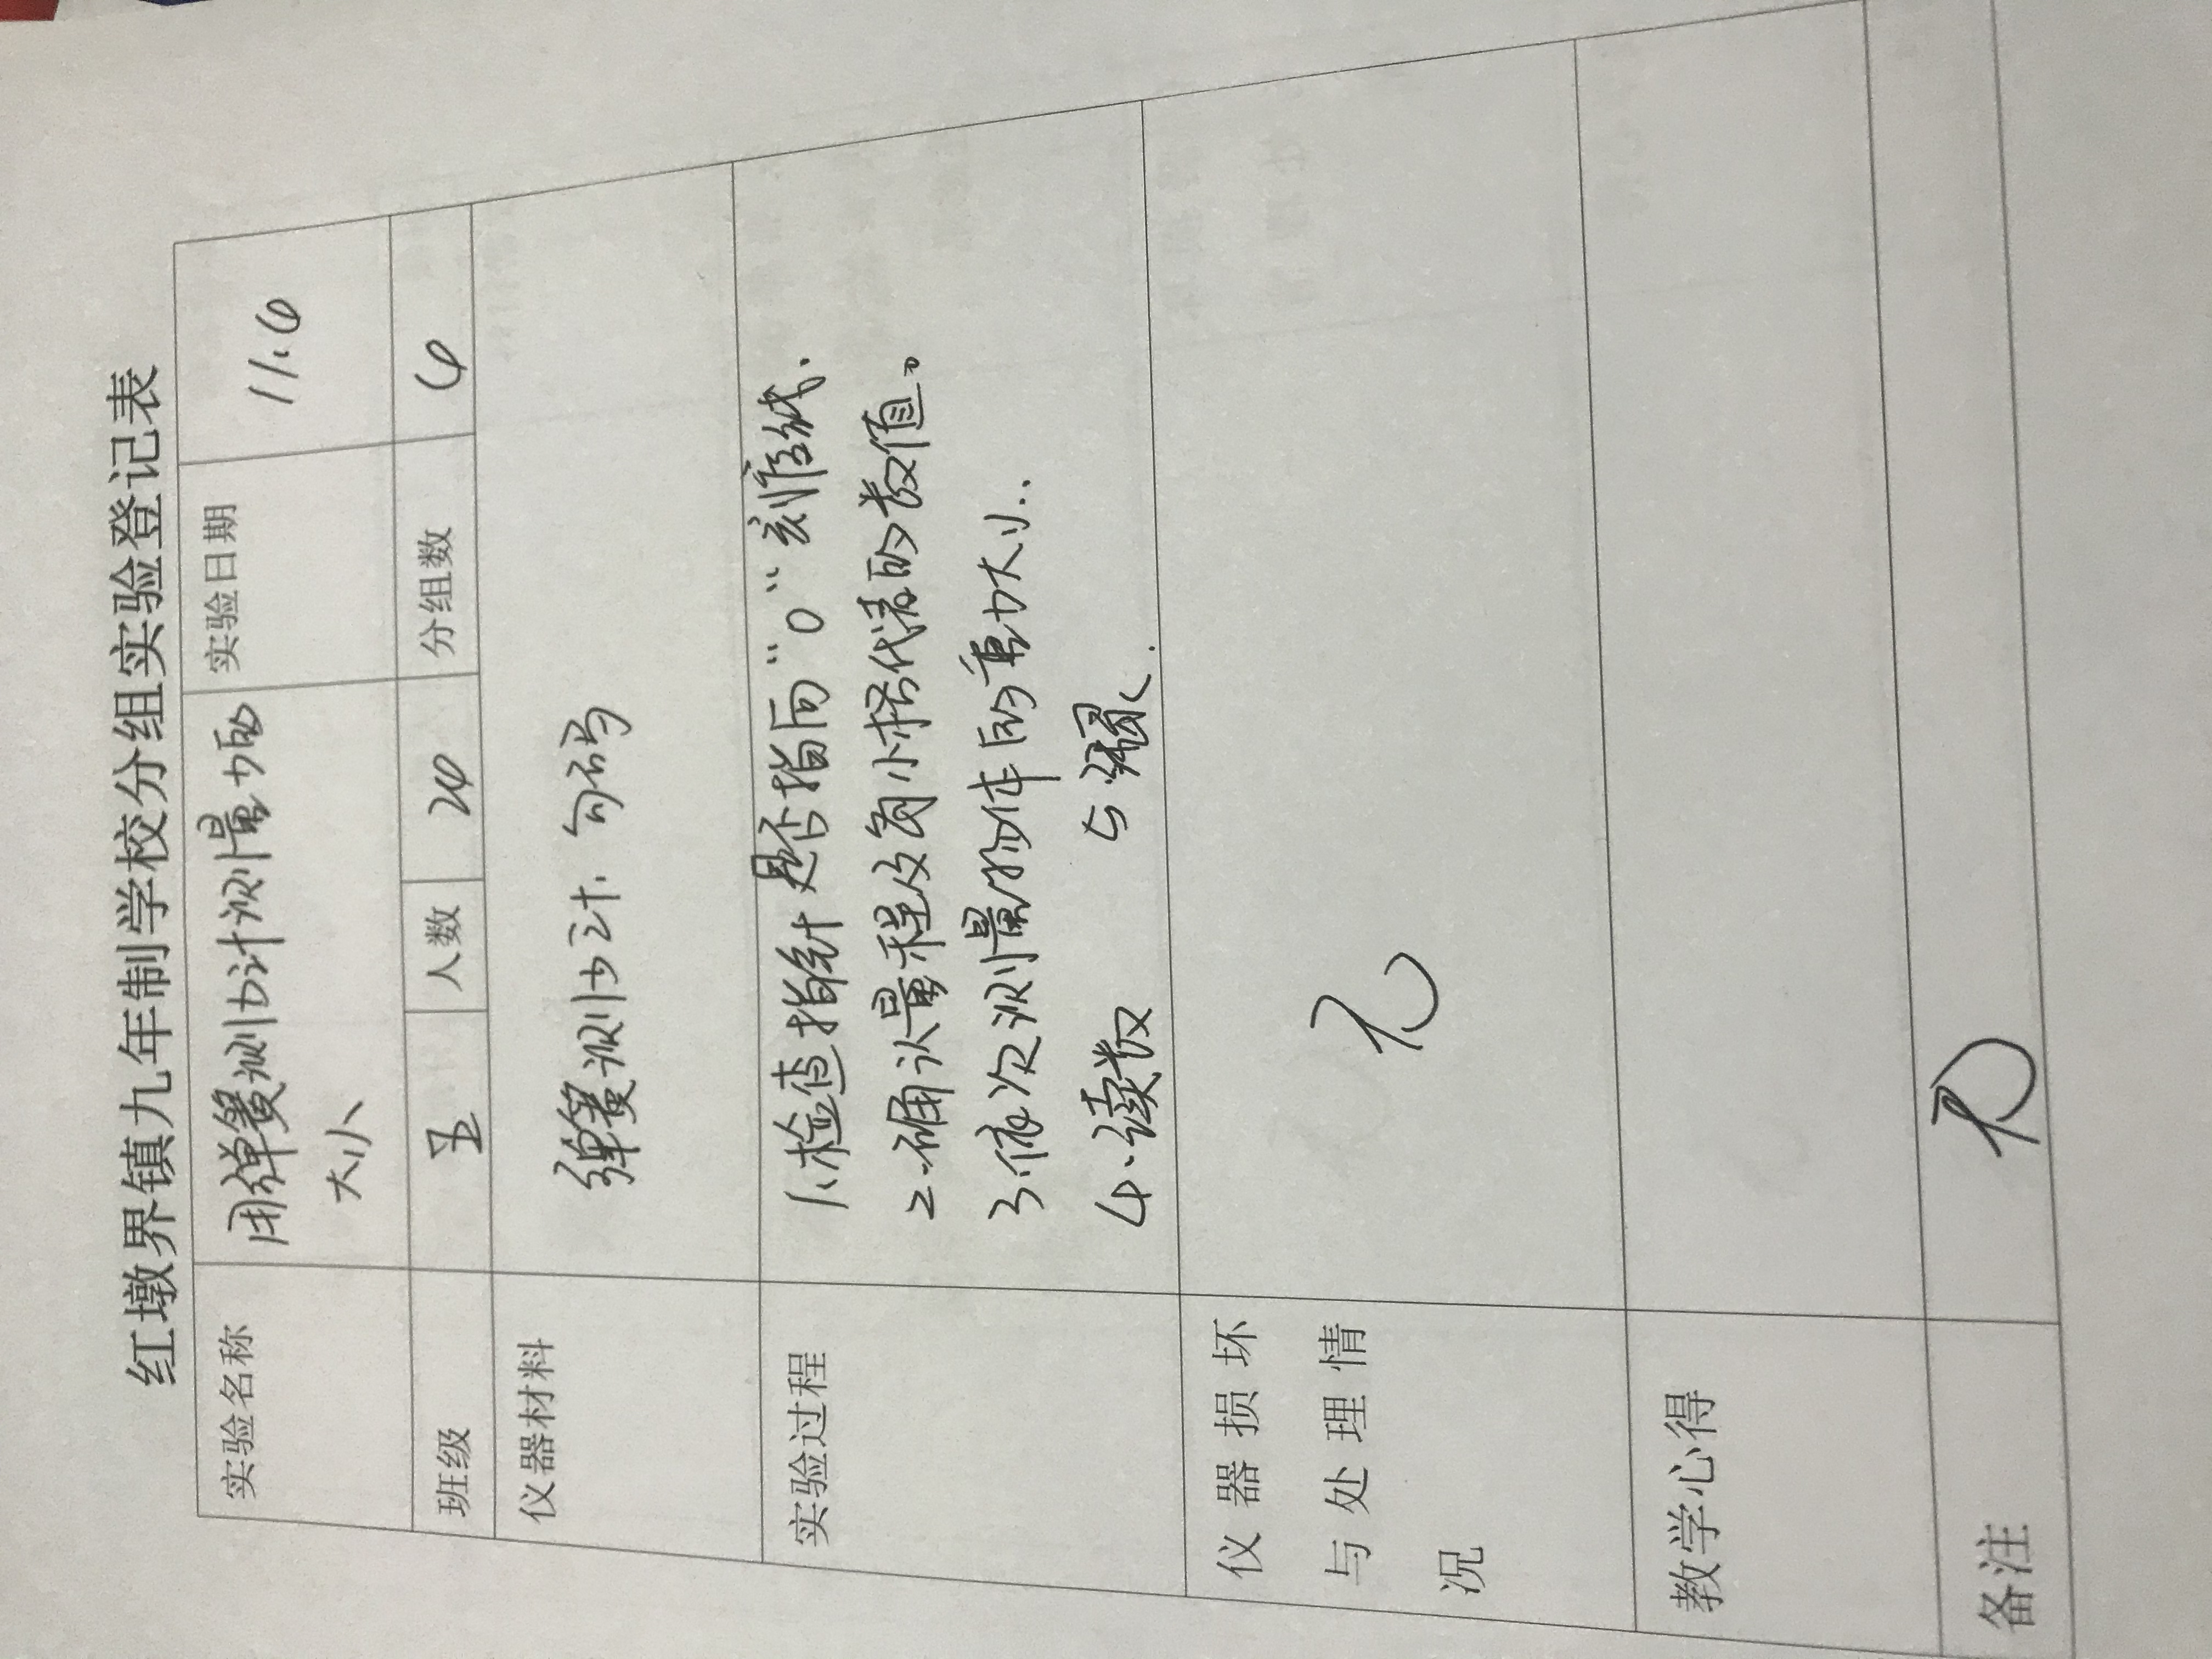 红墩界镇九年制学校分组实验登记表
实验名称 用弹簧测力计测量力的大小 实验日期 11.6
班级 五 人数 24 分组数 6
仪器材料 弹簧测力计. 勾码
实验过程
1.检查指针是否指向"0"刻度线.
2.确认量程及每小格代表的数值。
3.依次测量物体的重力大小..
4.读数 5
仪器损坏
与处理情
况 无
教学心得
备注 无